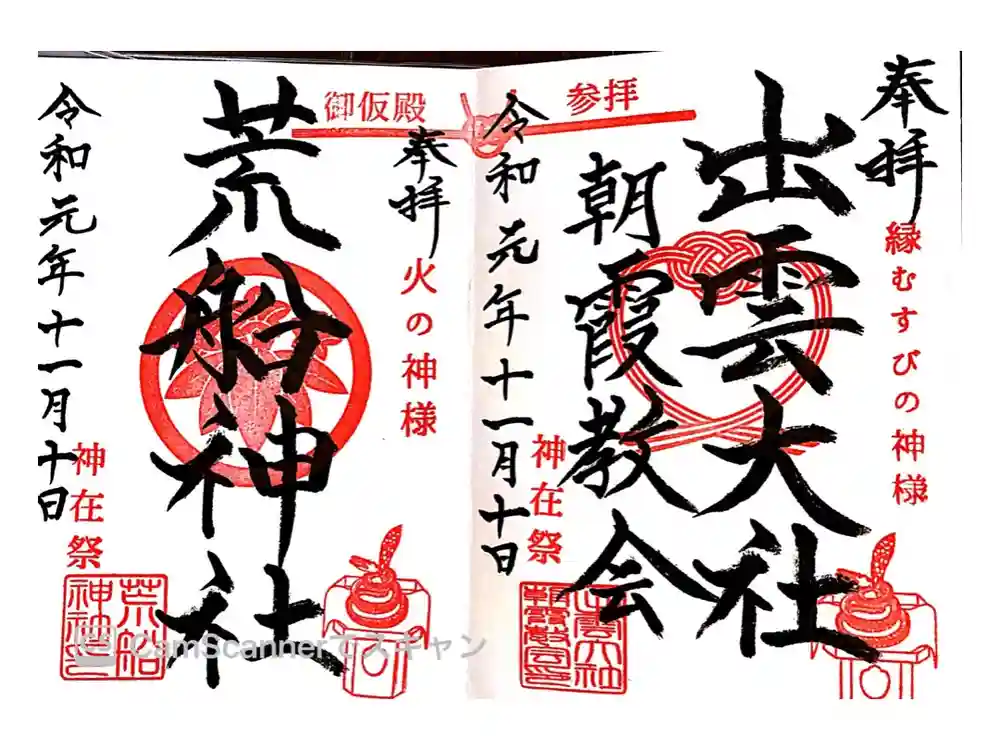 奉拝
縁むすびの神様
出雲大社
朝霞教会
参拝
神在祭
出雲大社
朝霞教会印
令和元年十一月十日
御仮殿
奉拝
火の神様
荒船神社
神在祭
荒船
神社印
令和元年十一月十日
CamScannerでスキャン